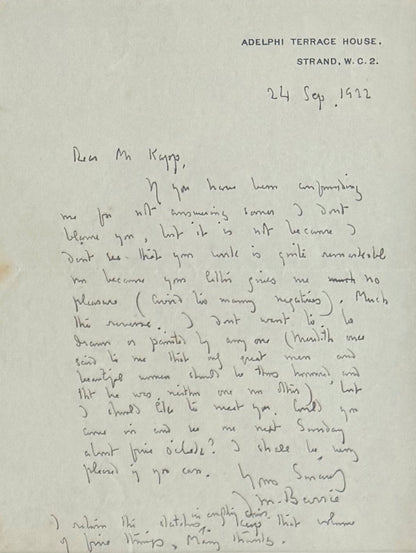 ADELPHI TERRACE HOUSE,
STRAND, W.C. 2.
24 Sep. 1922
Dear Mr Kapp,
If you have been confounding
me for not answering sooner I don't
blame you, but it is not because I
don't see that your work is quite remarkable
nor because your letter gives me much no
pleasure (avoid too many negatives). Much
the reverse. I don't want to be
drawn or painted by any one (Meredith once
said to me that only great men and
beautiful women should be thus honored, and
that he was neither one nor other) but
I should like to meet you. Could you
come in and see me next Sunday
about five o'clock? I shall be very
pleased if you can.
Yours Sincerely
J. M. Barrie
I return the sketches, keep that volume
of fine things. Many thanks.